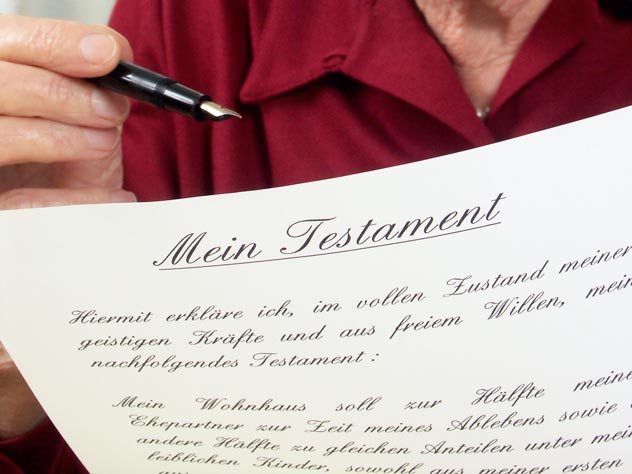 Mein Testament
Hiermit erkläre ich, im vollen Zustand meiner
geistigen Kräfte und aus freiem Willen, mein
nachfolgendes Testament :
Mein Wohnhaus soll zur Hälfte meine
Ehepartner zur Zeit meines Ablebens sowie
andere Hälfte zu gleichen Anteilen unter mein
leiblichen Kinder, sowohl aus meiner ersten